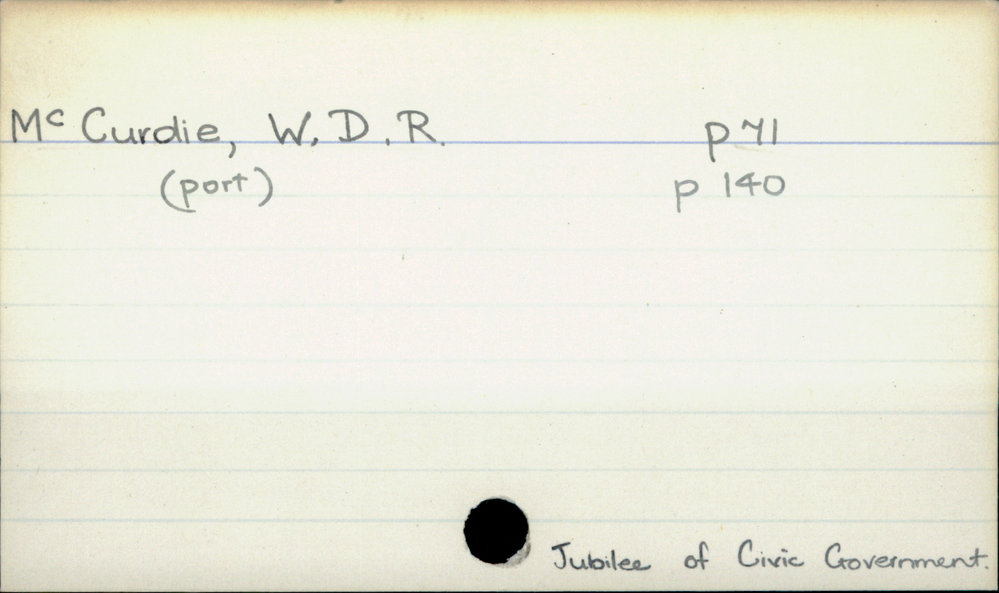 Mc Curdie, W. D. R. p 71
(port) p 140
Jubilee of Civic Government.